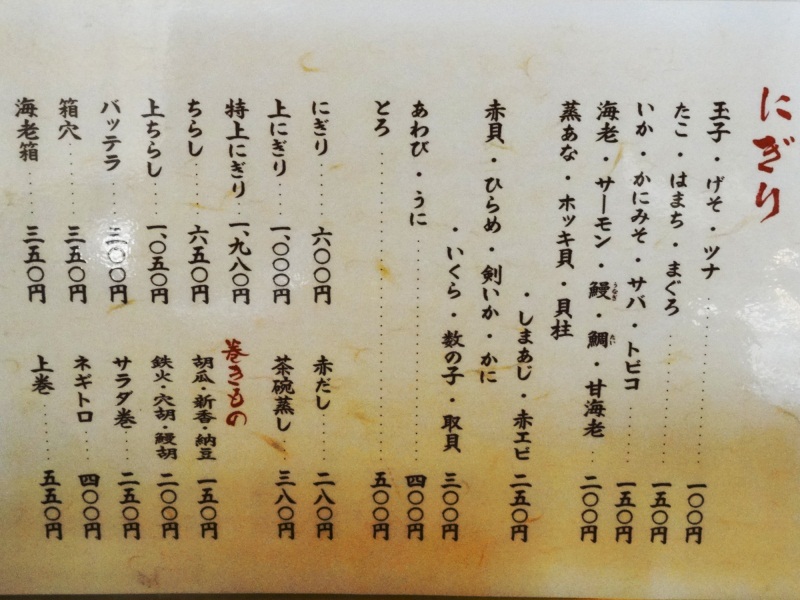 にぎり
玉子・げそ・ツナ……一〇〇円
たこ・はまち・まぐろ……一五〇円
いか・かにみそ・サバ・トビコ……一五〇円
海老・サーモン・鰻・鯛・甘海老…二〇〇円
うなぎ
たい
蒸あな・ホッキ貝・貝柱
・しまあじ・赤エビ 二五〇円
赤貝・ひらめ・剣いか・かに
・いくら・数の子・取貝 三〇〇円
あわび・うに……四〇〇円
とろ……五〇〇円
にぎり……六〇〇円
上にぎり……一、〇〇〇円
特上にぎり…一、九八〇円
ちらし……六五〇円
上ちらし……一、〇五〇円
バッテラ……三〇〇円
箱穴……三五〇円
海老箱……三五〇円
赤だし……二八〇円
茶碗蒸し…三八〇円
巻きもの
胡瓜・新香・納豆 一五〇円
鉄火・穴胡・鰻胡 二〇〇円
サラダ巻…二五〇円
ネギトロ…四〇〇円
上巻……五五〇円